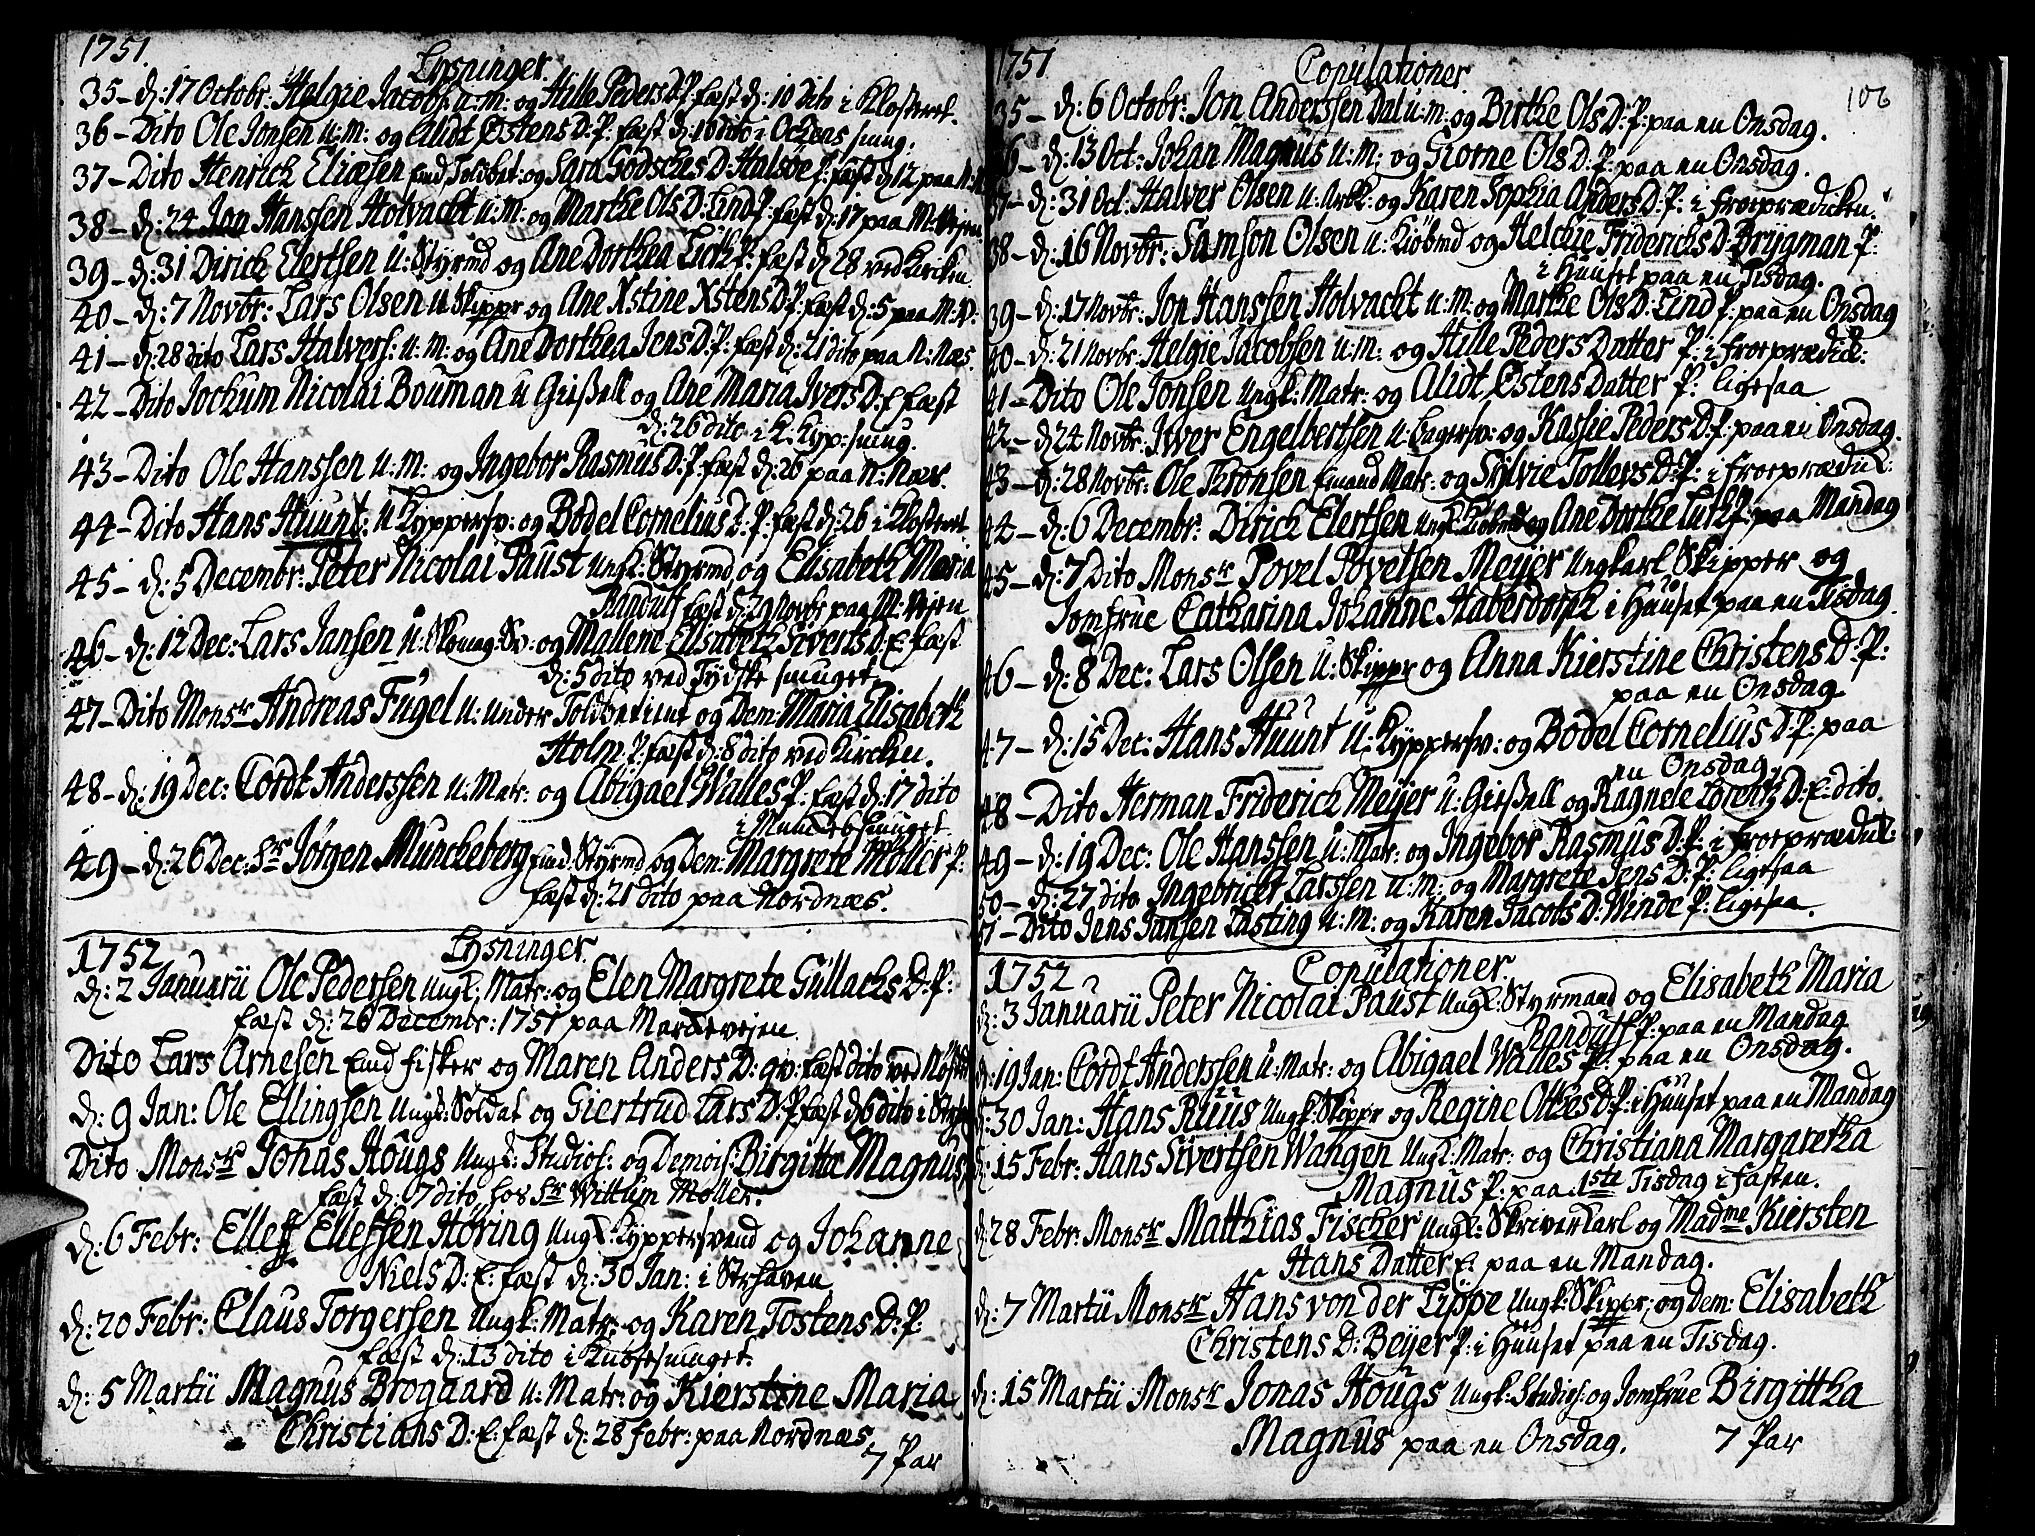 1751.
Lysninger.
35 – d: 17 Octobr: Helgie Jacobs: u: m: og Hille Peders D: P: fæst d: 10 dito i Klosteret.
36 – Dito Ole Jonsen u: m: og Alidt Østens D: P: fæst d: 16 dito i smug.
37 – Dito Henrich Eliæsen Emd og Sara Godsches D: P: fæst d: 12 paa N: N:
38 – d: 24 Jon Hanssen Holvacht u: m: og Marthe Ols D: Lind P: fæst d: 17 paa M: Vejen
39 – d: 31 Dirich Elertsen u: Styrmd og Ane Dorthea Lüth P: fæst d: 28 ved Kircken.
40 – d: 7 Novbr: Lars Olsen u: Skippr og Ane Xstine Xstens D: P: fæst d: 5 paa M: V:
41 – d: 28 dito Lars Halvers: u: m: og Ane Dorthea Jens D: P: fæst d: 21 dito paa N: Næs.
42 – Dito Jochum Nicolai Bouman u Gißell og Ane Maria Ivers D: E fæst
d: 26 dito i K: Kyp: smug.
43 – Dito Ole Hanssen u: m: og Ingebor Rasmus D: P: fæst d: 26 paa N: Næs.
44 – Dito Hans Huunt: u Kyppersv: og Bodel Cornelius D: P: fæst d: 26 i Klosteret
45 – d: 5 Decembr: Peter Nicolai Paust ungk: Styrmd og Elisabeth Maria
Randulf fæst d: 29 Novbr paa M: Vejen
46 – d: 12 Dec: Lars Jansen u: Skomag: Sv: og Mallene Elisabeth Siverts D: E: fæst
d: 5 dito ved Tydske smuget.
47 – Dito Monsr Andreas Fugel u: under Toldbetient og Dem: Maria Elisabeth
Holm P: fæst d: 8 dito ved Kircken.
48 – d: 19 Dec: Cordt Anderssen u: Matr: og Abigael Walles P: fæst d: 17 dito
i smuget.
49 – d: 26 Dec: Hr Jørgen Munckeberg Emd: Styrmd og Dem: Margrete Møller P:
fæst d: 21 dito paa Nordnæs.
1752
Lysninger.
d: 2 Januarii Ole Pedersen ungk: Matr: og Elen Margrete Gullachs D: P:
fæst d: 26 Decembr: 1751 paa Marckevejen.
Dito Lars Arnesen Emd fisker og Maren Anders D: qv: fæst dito ved Nøstet
d: 9 Jan: Ole Ellingsen ungk: Soldat og Giertrud Lars D: P: fæst d: 6 dito i
Dito Monsr Jonas Hougs ungk: Studios: og Demois: Birgitta Magnus
fæst d: 7 dito hos Hr Willum Møller.
d: 6 Febr: Elleff Ellefsen Høring ungk: Kyppersvend og Johanne
Niels D: E: fæst d: 30 Jan: i Strhaven
d: 20 Febr: Claus Torgersen ungk: Matr: og Karen Tostens D: P:
fæst d: 13 dito i smuget.
d: 5 Martii Magnus Brogaard u: Matr: og Kierstine Maria
Christians D: E: fæst d: 28 Febr: paa Nordnæs
7 Par
1751
Copulationer.
106
35 – d: 6 Octobr: Jon Anderssen Dal u: m: og Birthe Ols D: P: paa en Onsdag.
36 – d: 13 Oct: Johan Magnus u: m: og Giørne Ols D: P: paa en Onsdag.
37 – d: 31 Oct: Halver Olsen u: Arbk: og Karen Sophia Anders D: P: i froeprædicken.
38 – d: 16 Novbr: Samson Olsen u: Kiöbmd og Helchie Friderichs D: Brygman P:
i Huuset paa en Tisdag.
39 – d: 17 Novbr: Jon Hanssen Holvacht u: m: og Marthe Ols D: Lind P: paa en Onsdag
40 – d: 21 Novbr: Helgie Jacobsen u: m: og Hille Peders Datter P: i froeprædik:
41 – Dito Ole Jonsen ungk: Matr: og Alidt Østens Datter P: ligesaa
42 – d: 24 Novbr: Iver Engelbertsen u: Bagersv: og Kassie Peders D: P: paa en Onsdag.
43 – d: 28 Novbr: Ole Thronsen Emand Matr: og Sylvie Tollevs D: P: i froeprædik:
44 – d: 6 Decembr: Dirich Elertsen ungk: og Ane Dorthe Lüth P: paa Mandag
45 – d: 7 Dito Monsr Povel Povelsen Meyer ungkarl Skipper og
Jomfrue Catharina Johanne Haberdorph i Huuset paa en Tisdag.
46 – d: 8 Dec: Lars Olsen u: Skippr og Anna Kierstine Christens D: P:
paa en Onsdag
47 – d: 15 Dec: Hans Huunt u: Kyppersv: og Bodel Cornelius D: P: paa
en Onsdag.
48 – Dito Herman Friderich Meyer u: Gißell og Ragnele Lorentz D: E: dito.
49 – d: 19 Dec: Ole Hanssen u: Matr: og Ingebor Rasmus D: P: i froeprædik:
50 – d: 27 dito Ingebricht Larssen u: m: og Margrete Jens D: P: ligesaa
51 – Dito Jens Jansen Lasting u: m: og Karen Jacobs D: Winde P: ligesaa.
1752
Copulationer.
d: 3 Januarii Peter Nicolai Paust ungk: Styrmand og Elisabeth Maria
Randulf P: paa en Mandag
d: 19 Jan: Cordt Anderssen u: Matr: og Abigael Walles P: paa en Onsdag.
d: 30 Jan: Hans Ruus ungk: Skippr og Regine Ottes D: P: i Huuset paa en Mandag
d: 15 Febr: Hans Sivertsen Wangen ungk: Matr: og Christiana Margaretha
Magnus P: paa 1ste Tisdag i fasten.
d: 28 Febr: Monsr Matthias Fischer ungk: Skriverkarl og Madme Kiersten
Hans Datter E: paa en Mandag.
d: 7 Martii Monsr Hans von der Lippe ungk: Skippr: og Dem: Elisabeth
Christens D: Beyer P: i Huuset paa en Tisdag.
d: 15 Martii Monsr Jonas Hougs ungk: Studios: og Jomfrue Birgittha
Magnus paa en Onsdag.
7 Par